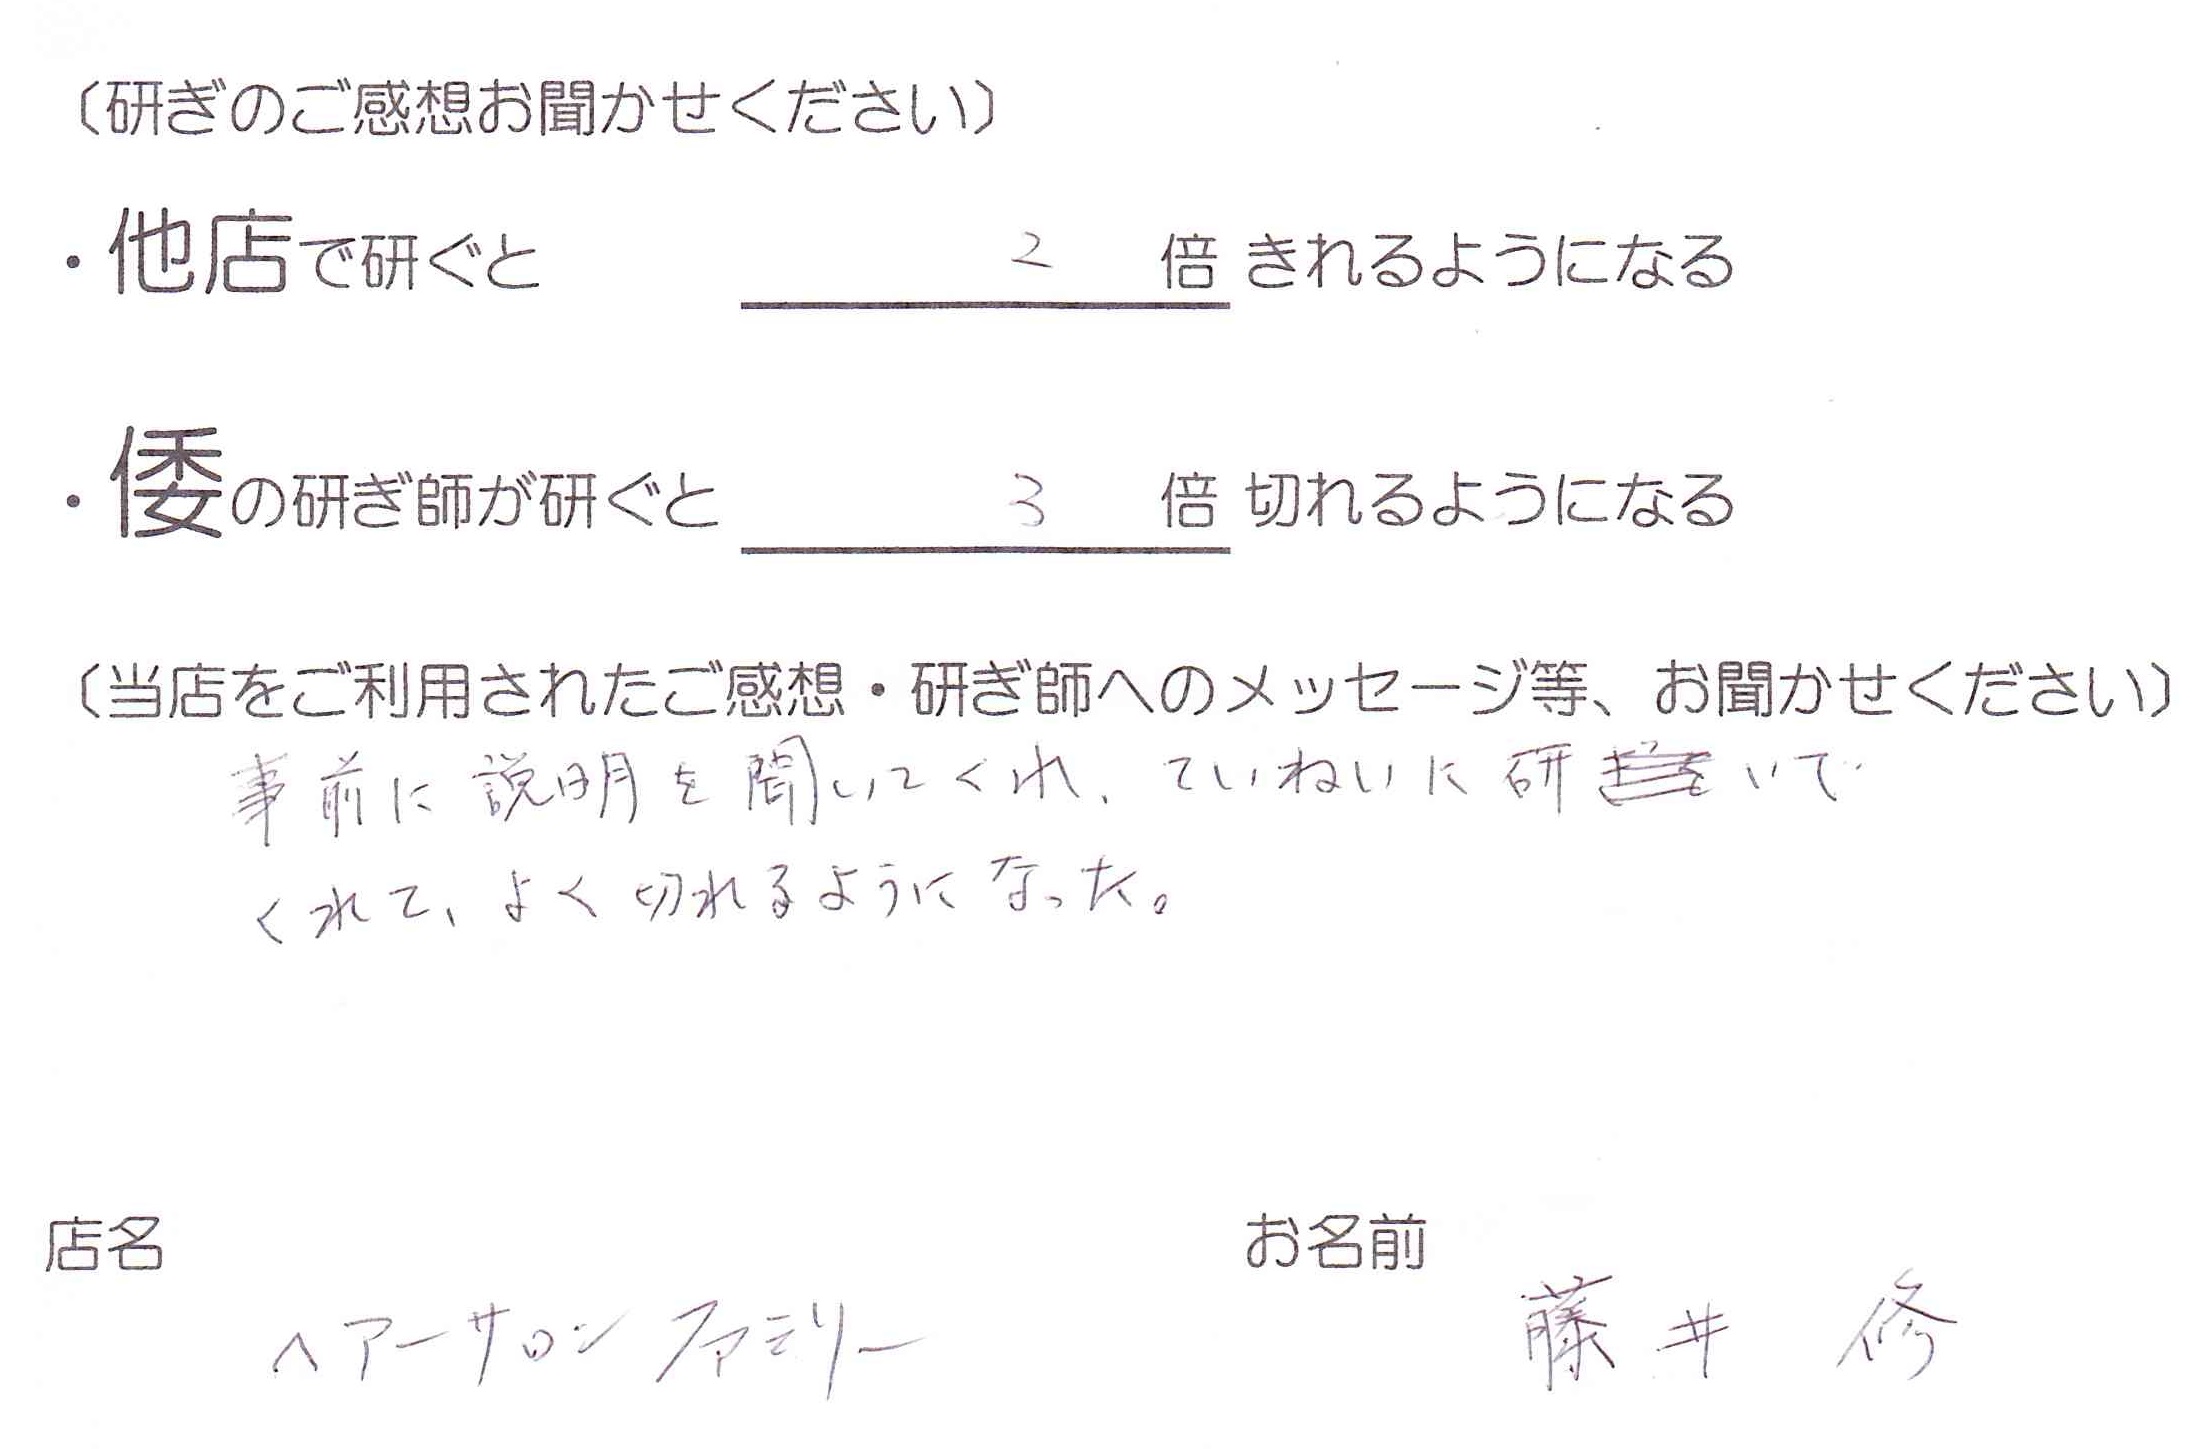 〔研ぎのご感想お聞かせください〕
・他店で研ぐと 2 倍 きれるようになる
・倭の研ぎ師が研ぐと 3 倍 切れるようになる
〔当店をご利用されたご感想・研ぎ師へのメッセージ等、お聞かせください〕
事前に説明を聞いてくれ、ていねいに研いで
くれて、よく切れるようになった。
店名 お名前
ヘアーサロン ファミリー 藤井 修